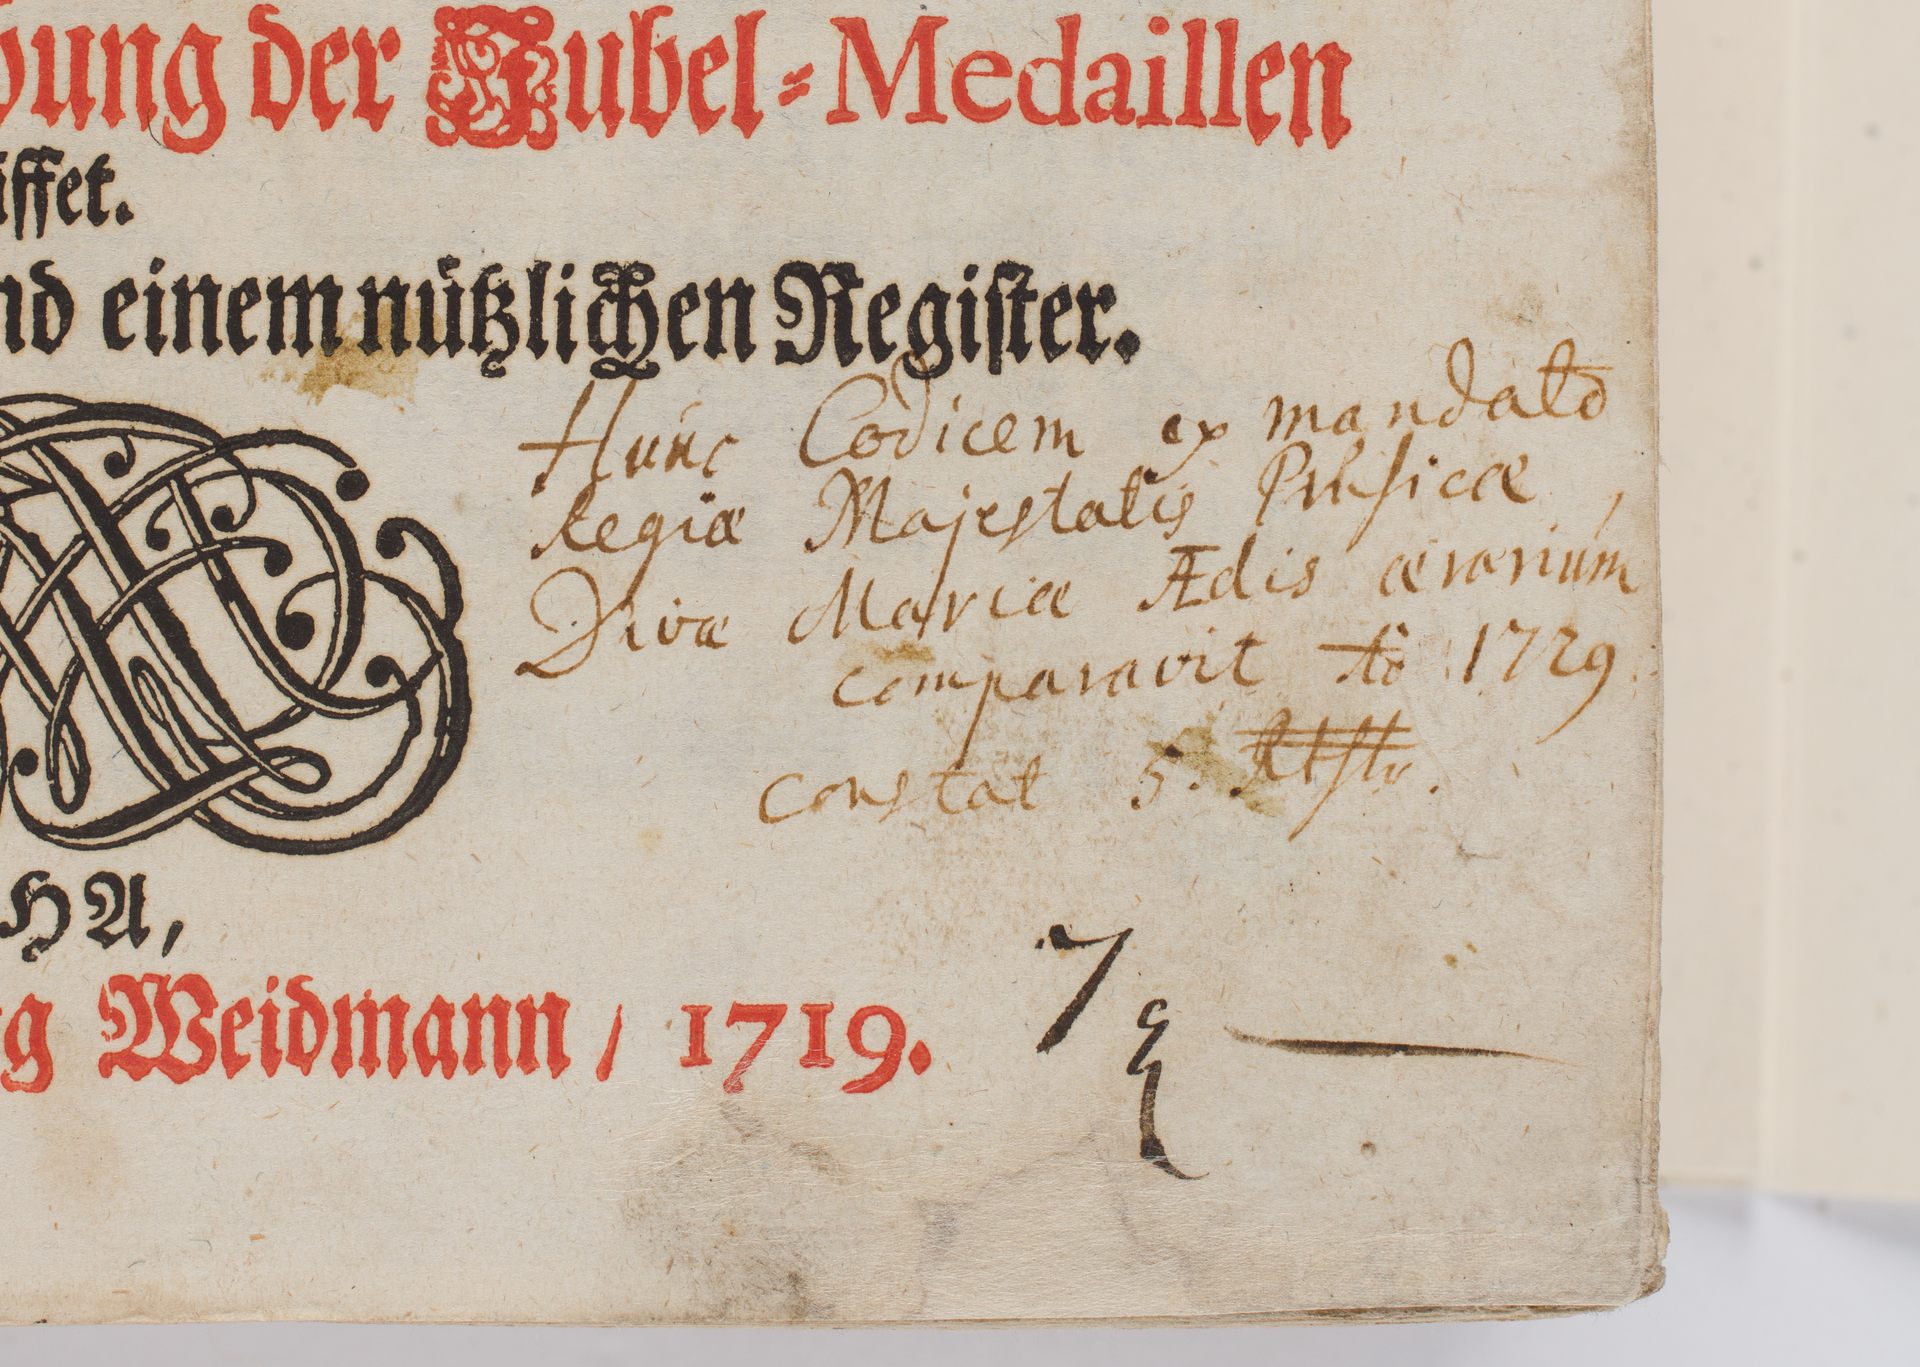 bung der Jubel-Medaillen
iffet.
nd einem nützlichen Register.
Hunc Codicem ex mandato
Regiæ Majestatis Prusicæ,
Divæ Mariæ Ædis ærarium
comparavit Ao 1729.
constat 5.
HA,
rg Weidmann / 1719.